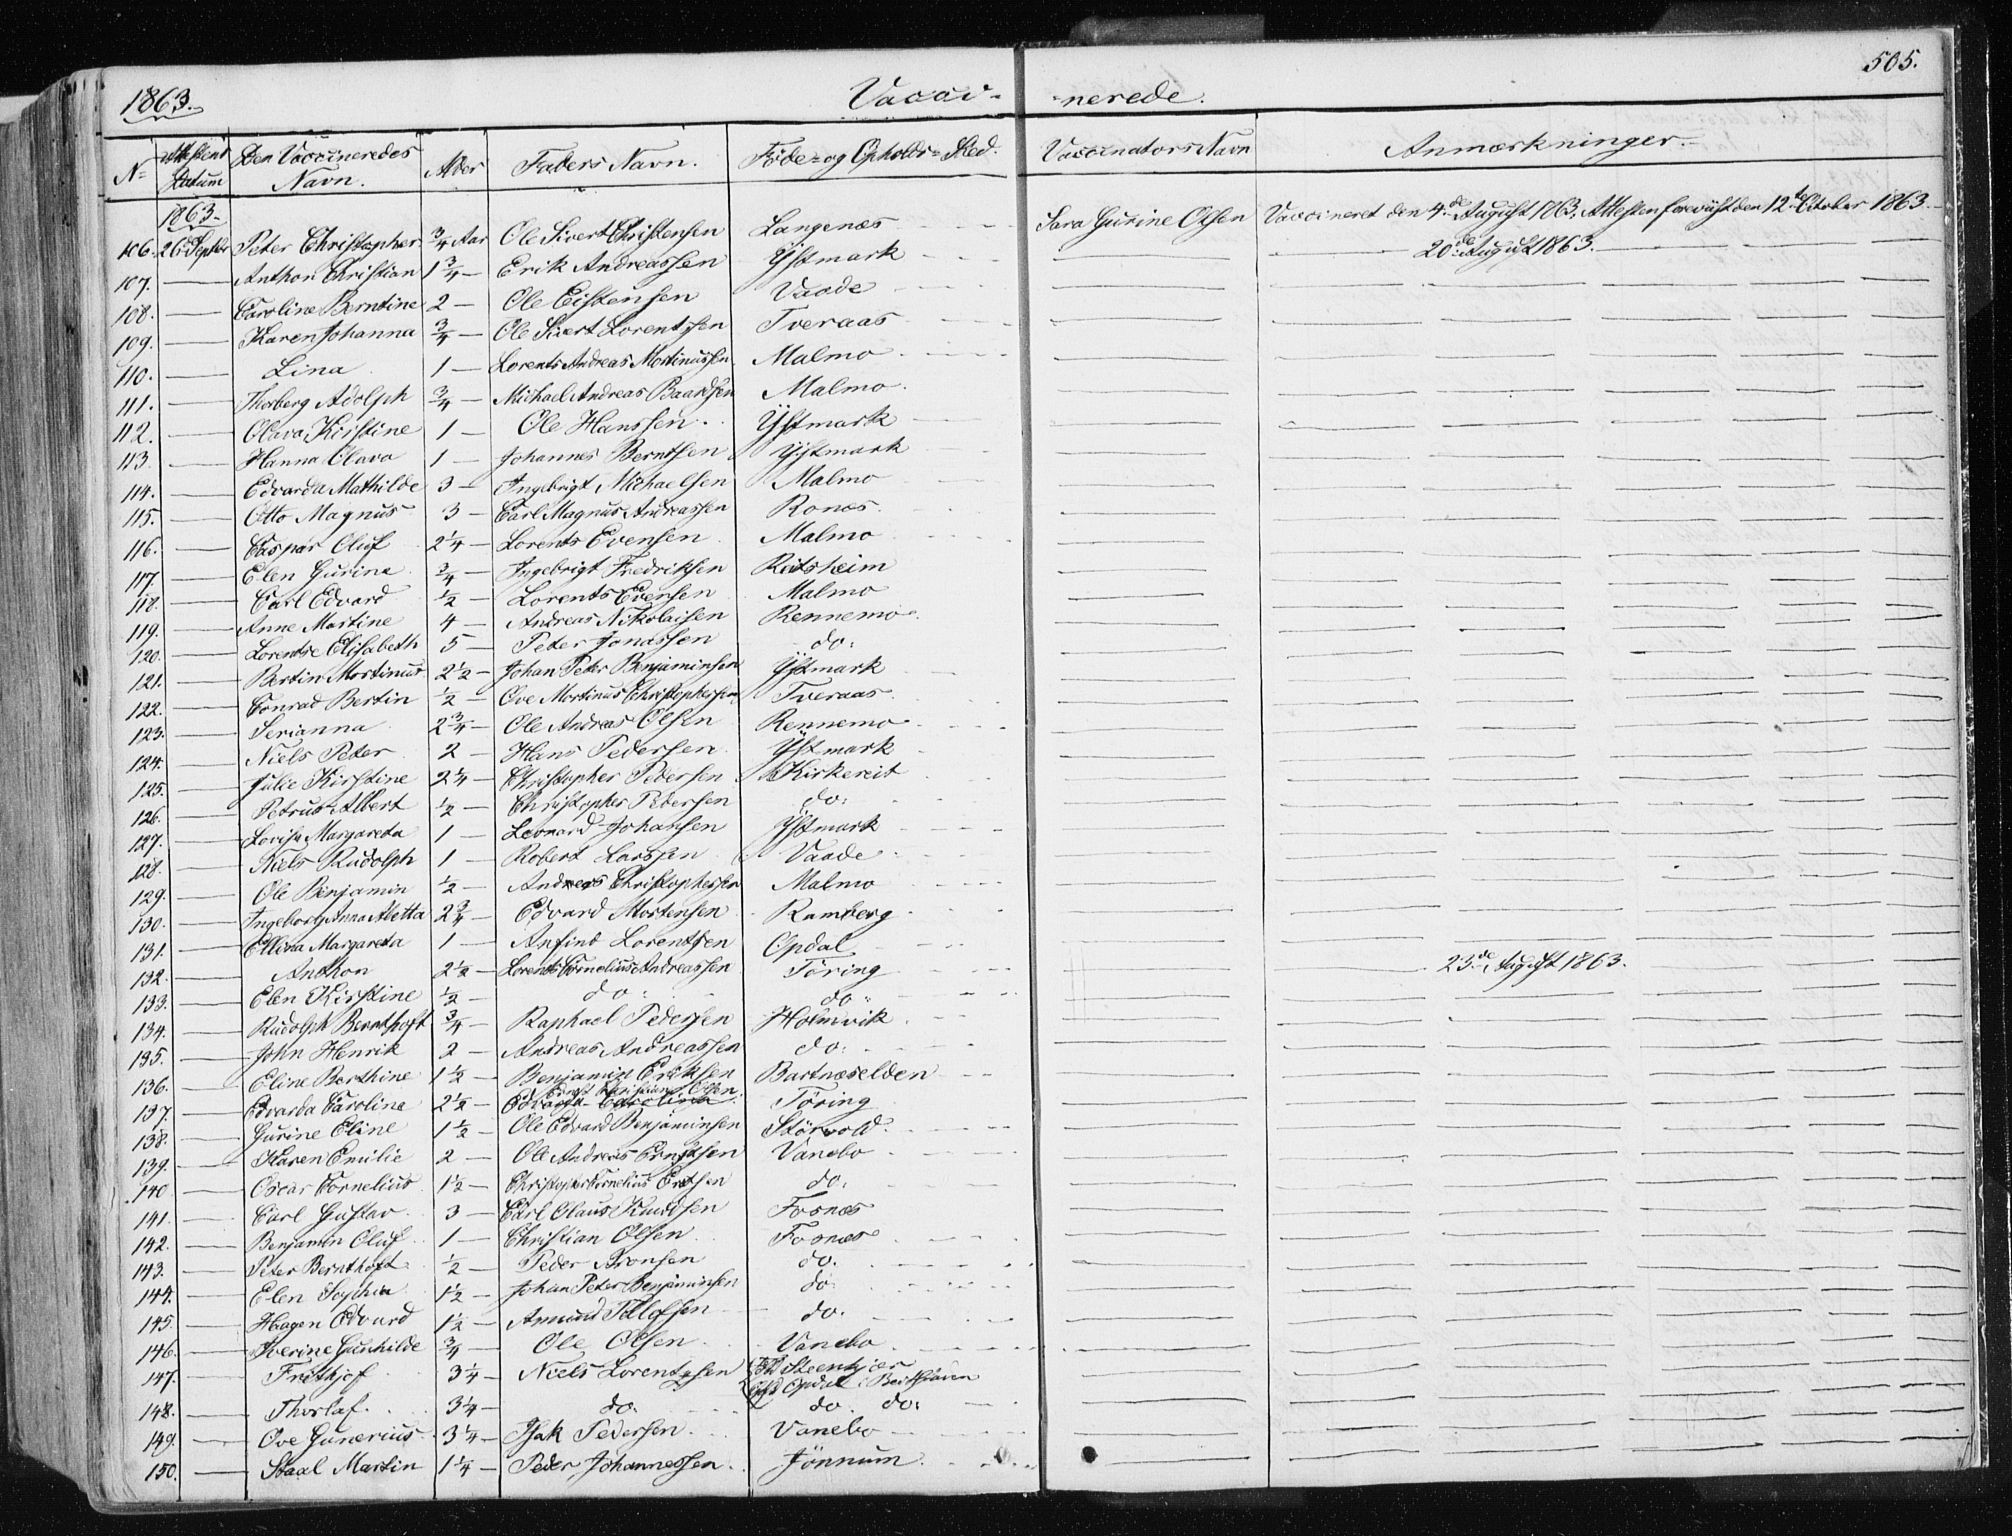 505.
1863. Vacci- -nerede.
No Attestens Datum Den Vaccineredes Navn. Alder Faders Navn. Föde- og Opholds-Sted. Vaccinators Navn Anmærkninger.
1863.
106. 26 Septbr Peter Christopher 3/4 Aar Ole Sivert Christensen Langenæs Sara Gurine Olsen Vaccineret den 4de August 1863. Attesten foreviist den 12te October 1863.
107. — Anthon Christian 1 3/4 — Erik Andreassen Ystmark — 20de August 1863. —
108. — Caroline Berntine 2 — Ole Eistensen Vaade
109. — Karen Johanna 3/4 — Ole Sivert Lorentzen Tveraas
110. — Lina 1 — Lorents Andreas Mortinussen Malmo
111. — Thorberg Adolph 3/4 — Michael Andreas Baardsen Malmo
112. — Olava Kirstine 1 — Ole Hanssen Ystmark
113. — Hanna Olava 1 — Johannes Berntsen Ystmark
114. — Edvarda Mathilde 3 — Ingebrigt Michaelsen Malmo
115. — Otto Magnus 3 — Carl Magnus Andreassen Ronæs
116. — Caspar Oluf 2 1/4 — Lorents Evensen Malmo
117. — Elen Gurina 3/4 — Ingebrigt Fredriksen
118. — Carl Edvard 1/2 — Lorents Evensen Malmo
119. — Anne Martine 4 — Andreas Nikolaisen Rennemo
120. — Lorentse Elisabeth 5 — Peter Jonassen do:
121. — Bertin Mortinus 2 1/2 — Johan Peter Benjaminsen Ystmark
122. — Conrad Bertin 1/2 — Ove Mortinus Christophersen Tveraas
123. — Serianna 2 3/4 — Ole Andreas Olsen Rennemo
124. — Niels Peter 2 — Hans Pedersen Ystmark
125. — Julie Kirstine 2 1/4 — Christopher Pedersen Kirkereit
126. — Petrus Albert 1/2 — Christopher Pedersen do:
127. — Lovise Margareta 1 — Leonard Johansen Ystmark
128. — Niels Rudolph 1 — Robert Larssen Vaade
129. — Ole Benjamin 1/2 — Andreas Christophersen Malmo
130. — Ingeborg Anna Aletta 2 3/4 — Edvard Mortensen Ramberg
131. — Ellina Margareta 1 — Anfind Lorentsen Opdal
132. — Anthon 2 1/2 — Lorents Cornelius Andreassen Töring 23de August 1863.
133. — Elen Kirstine 1/2 — do: do:
134. — Rudolph Bernthoft 3/4 — Raphael Pedersen Holmvik
135. — John Henrik 2 — Andreas Andreassen do:
136. — Eline Berthine 1 1/2 — Benjamin Eriksen Bartnæselden
137. — Edvarda Caroline 2 1/2 — Edvarda Caroline Ernst Christian Olsen Töring
138. — Gurine Eline 1 1/2 — Ole Edvard Benjaminsen Störvold
139. — Karen Emilie 2 — Ole Andreas Ernstsen Vanebo
140. — Oscar Cornelius 1 1/2 — Christopher Cornelius do:
141. — Carl Gustav 3 — Carl Olaus Knudsen Fosnæs
142. — Benjamin Oluf 1 — Christian Olsen Fosnæs
143. — Peter Bernthoft 1/2 — Peder Aronsen do.
144. — Elen Sophia 1 1/2 — Johan Peter Benjaminsen do:
145. — Hagen Edvard 1 1/2 — Amund Tollefsen do.
146. — Iverine Gunhilde 3/4 — Ole Olsen Vanebo
147. — Frithjof 3 1/4 — Niels Lorentzen Steenkjær
Opdal i Beitstaden
148. — Thorlaf 3 1/4 — do. do. do:
149. — Ove Gunerius 3 1/4 — Isak Pedersen Vanebo
150. — Staal Martin 1 1/4 — Peder Johannessen Jönnum